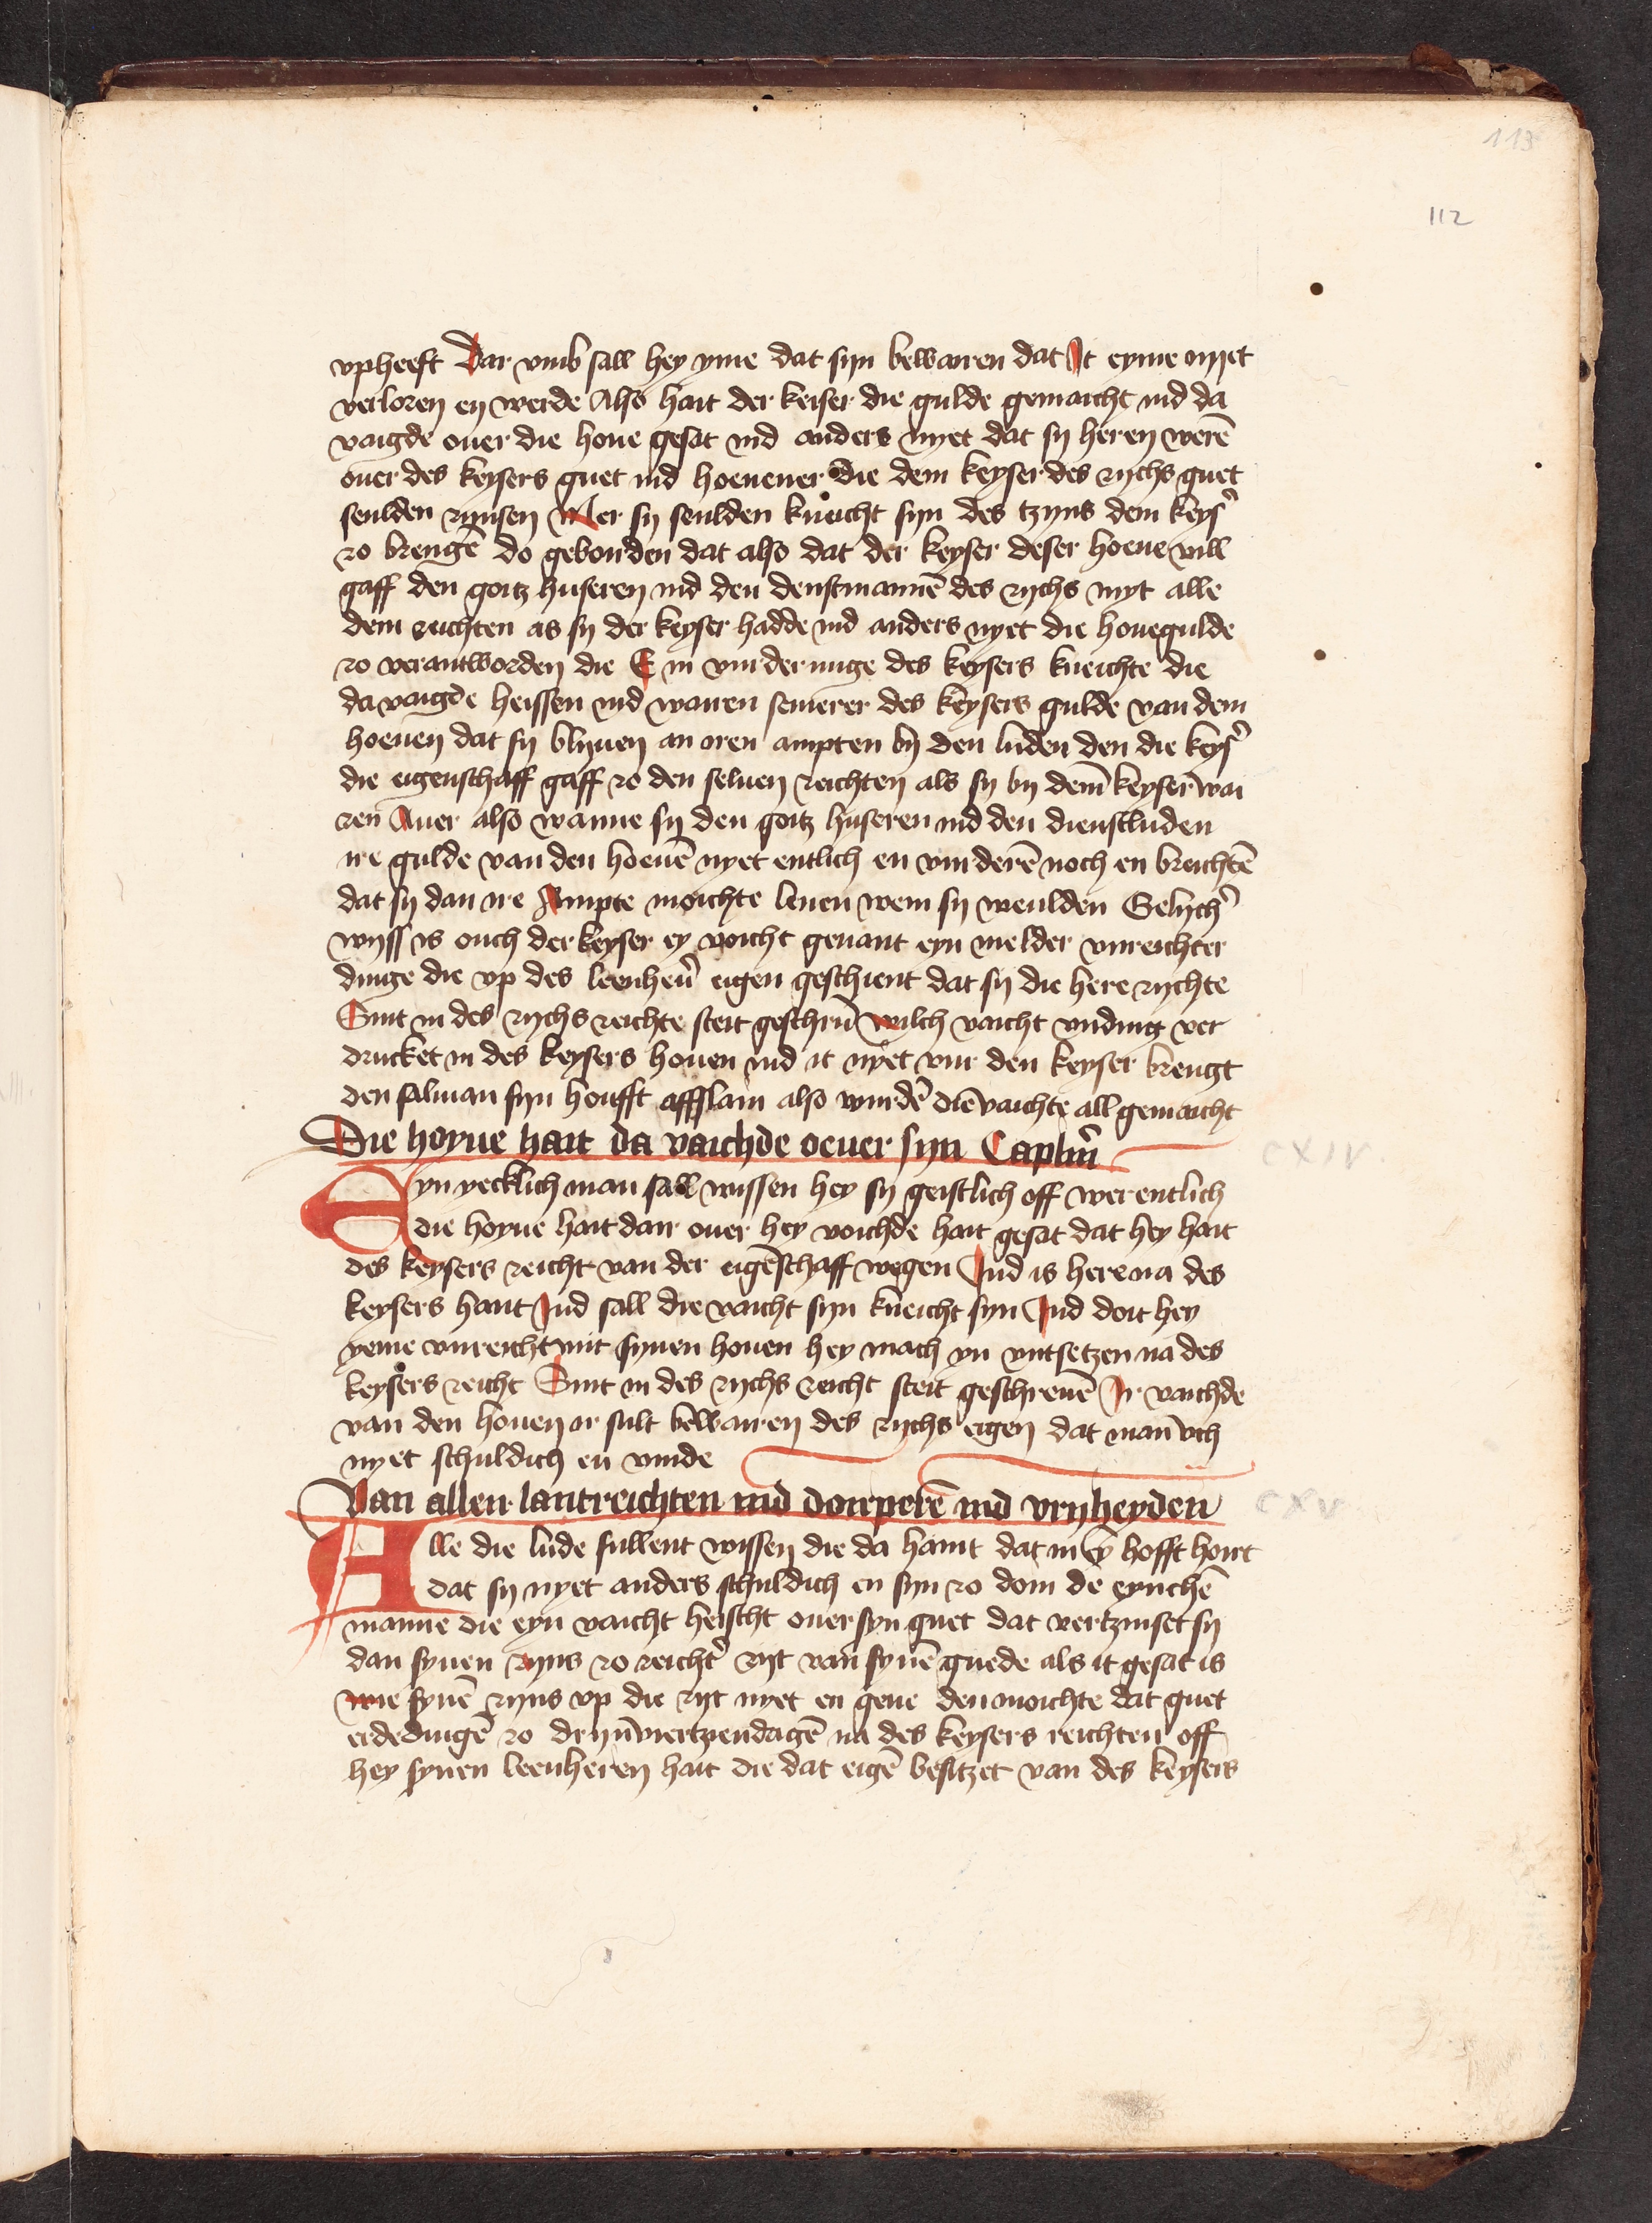 113
112
vpheeft Dar vmb sall hey yme dat syn bewaren dat It eyme nyet
verloren en werde Also hait der keiser die gulde gemaicht ind da
vaigde ouer die houe gesat ind anders nyet dat sy heren werē
ouer des keysers guet ind hoeuener die dem keyser des rychs guet
seulden zynsen Mer sy seulden kneicht syn des tzyns dem keys̄
zo brengē do gebonden dat also dat der keyser deser hoeue vill
gaff den goitz huseren ind den denstmannē des rychs myt alle
dem reichten as sy der keyser hadde ind anders nyet die houegulde
zo verantworden die E in vurderunge des keysers kneichte die
da vaigde heissen ind waren semerer des keysers gulde van dem
hoeuen dat sy blyuen an oren ampten by den luden den die keys̄
die eigenschaff gaff zo den seluen reichten als sy by dem̄ keyser wai
ren Auer also wanne sy den goitz huseren ind den dienstluden
ire gulde van den hoeuē nyet entlich en vurderē noch en breichtē
dat sy dan ire Ampte moichte lenen wem sy weulden Gelych̄
wyss is ouch der keyser ey voicht genant eyn melder vnreichter
dinge die vp des leenhen̄ eigen geschient dat sy die here rychte
Sint in des rychs reichte steit geschrū wilch vaicht vnding ver
drucket in des keysers houen ind it nyet vur den keyser brengt
den salman syn houfft affslain also wurdē diē vaichte all gemaicht
Die hoyue hait da vaichde oeuer syn Capl̄m
CXIV.
Eyn yecklich man sall wissen hey sy geistlich off werentlich
die hoyue hait dair ouer hey voichde hait gesat dat hey hait
des keysers reicht van der eigēschaff wegen Ind is here na des
keysers hant Ind sall die vaicht syn kneicht syn Ind doit hey
yeme vnreicht mit synen houen hey mach yn vntsetzen na des
keysers reicht Sint in des rychs reicht steit geschreuē Ir vaichde
van den houen ir sult bewairen des rychs eigen dat man vch
nyet schuldich en vinde
Van allen lantreichten ind dorperē ind vryheyden
CXV
Alle die lude sullent wissen die da haint dat in ey hofft hoirt
dat sy nyet anders schuldich en syn zo doin de eynchē
manne die eyn vaicht heischt ouer syn guet dat vertzinset sy
dan synen zyns zo reicht̄ zyt van synē guede als it gesat is
wie synē zyns vp die zyt nyet en geue den moichte dat guet
erdedingē zo dryn̄ viertzendagē na des keysers reichten off
hey synen leenheren hait die dat eigē besitzet van des keysers